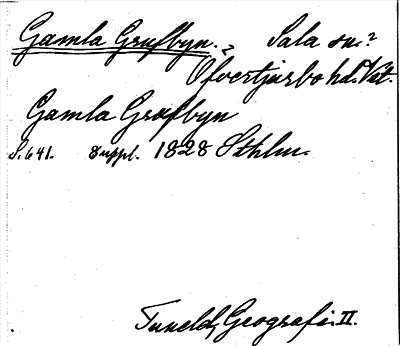 Gamla Grufbyn.? Sala sn.?
Öfvertjurbo hd. Vst.
Gamla Grufbyn
S. 641. Suppl. 1828 Sthlm.
Tuneld, Geografi. II.